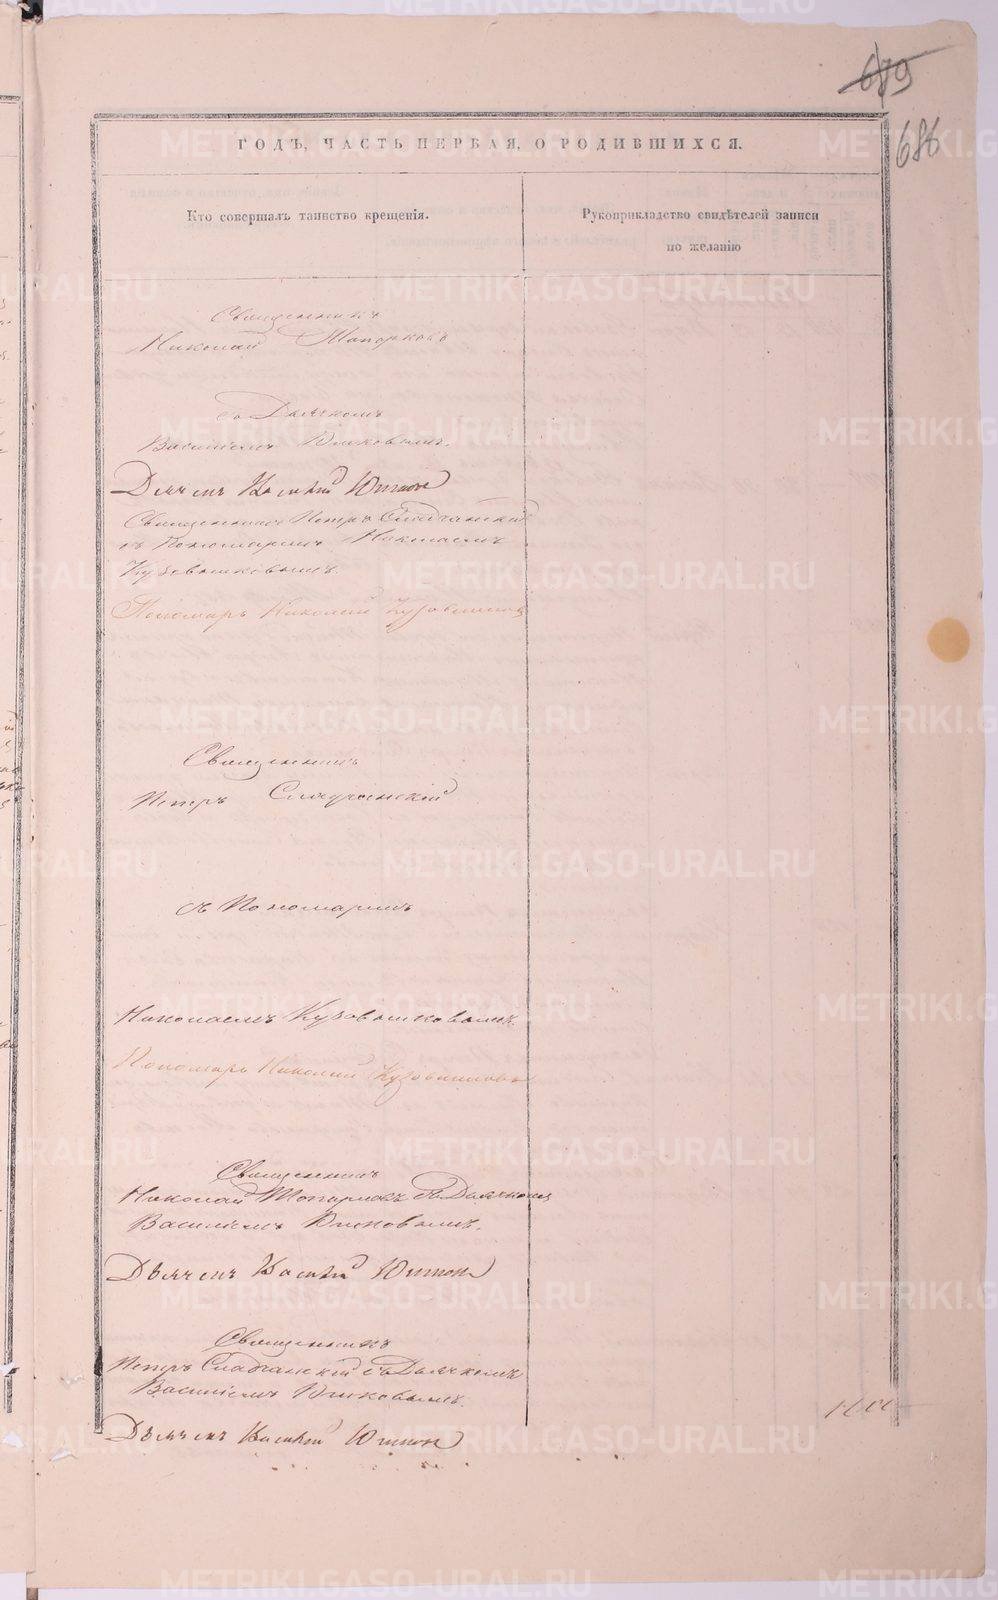 679
686
ГОДЪ, ЧАСТЬ ПЕРВАЯ, О РОДИВШИХСЯ.
Кто совершалъ таинство крещенія.
Рукоприкладство свидѣтелей записи
по желанію
Священникъ
Николай Топорковъ
съ Дьячкомъ
Василіемъ
Дьячекъ Василій
Священникъ Петръ
съ Пономаремъ Николаемъ
Кузовниковымъ
Пономарь Николай Кузовниковъ
Священникъ
Петръ
съ Пономаремъ
Николаемъ Кузовниковымъ.
Пономарь Николай Кузовниковъ
Священникъ
Николай Топорковъ съ Дьячкомъ
Василіемъ
Дьячекъ Василій
Священникъ
Петръ съ Дьячкомъ
Василіемъ
Дьячекъ Василій
METRIKI.GASO-URAL.RU